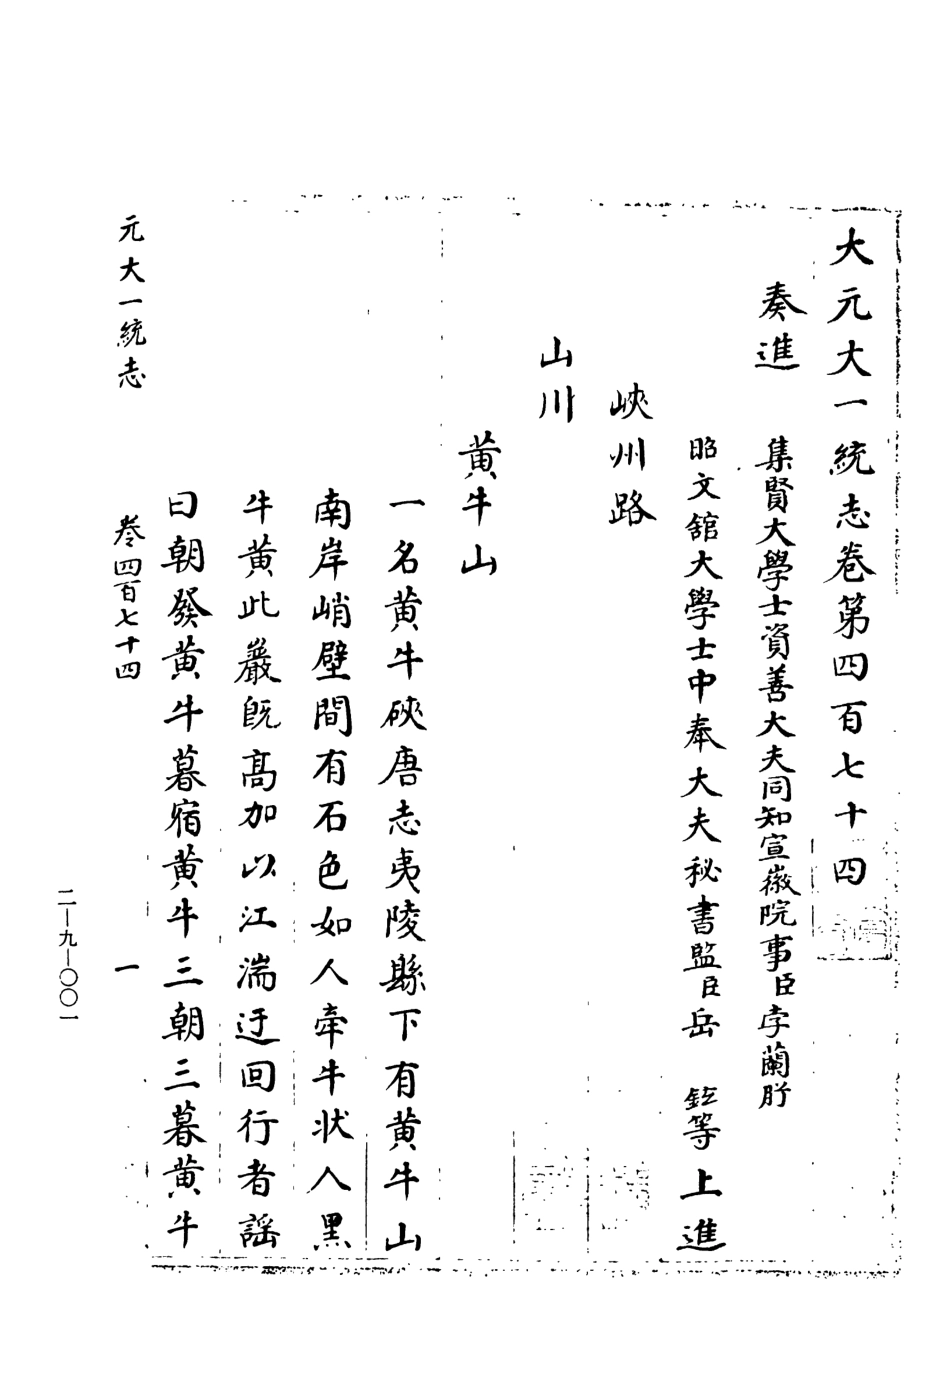 大元大一統志卷第四百七十四
奏進 集賢大學士資善大夫同知宣徽院事臣孛蘭肹
昭文館大學士中奉大夫秘書監臣岳 鉉等上進
峽州路
山川
黄牛山
一名黄牛硤唐志夷陵縣下有黄牛山
南岸峭壁間有石色如人牽牛状人黒
牛黄此巖既髙加以江湍迂回行者謡
曰朝發黄牛暮宿黄牛三朝三暮黄牛
元大一統志 卷四百七十四 一
二—九—〇〇一